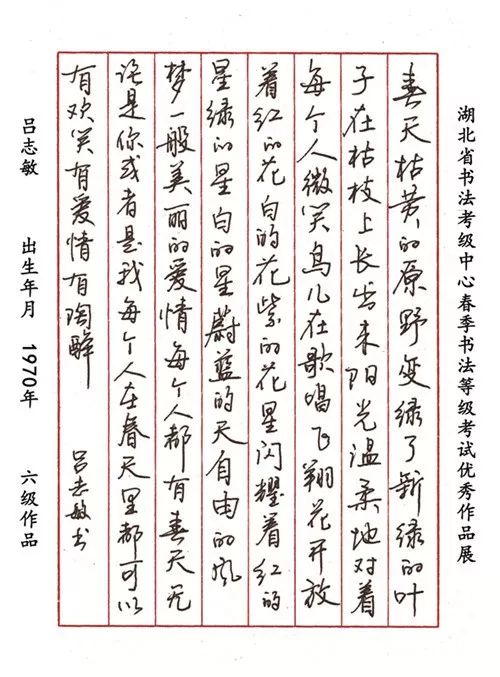 湖北省书法考级中心春季书法等级考试优秀作品展
春天枯黄的原野变绿了新绿的叶
子在枯枝上长出来阳光温柔地对着
每个人微笑鸟儿在歌唱飞翔花开放
着红的花白的花紫的花星闪耀着红的
星绿的星白的星蔚蓝的天自由的风
梦一般美丽的爱情每个人都有春天无
论是你或者是我每个人在春天里都可以
有欢笑有爱情有陶醉
吕志敏书
吕志敏 出生年月 1970年 六级作品